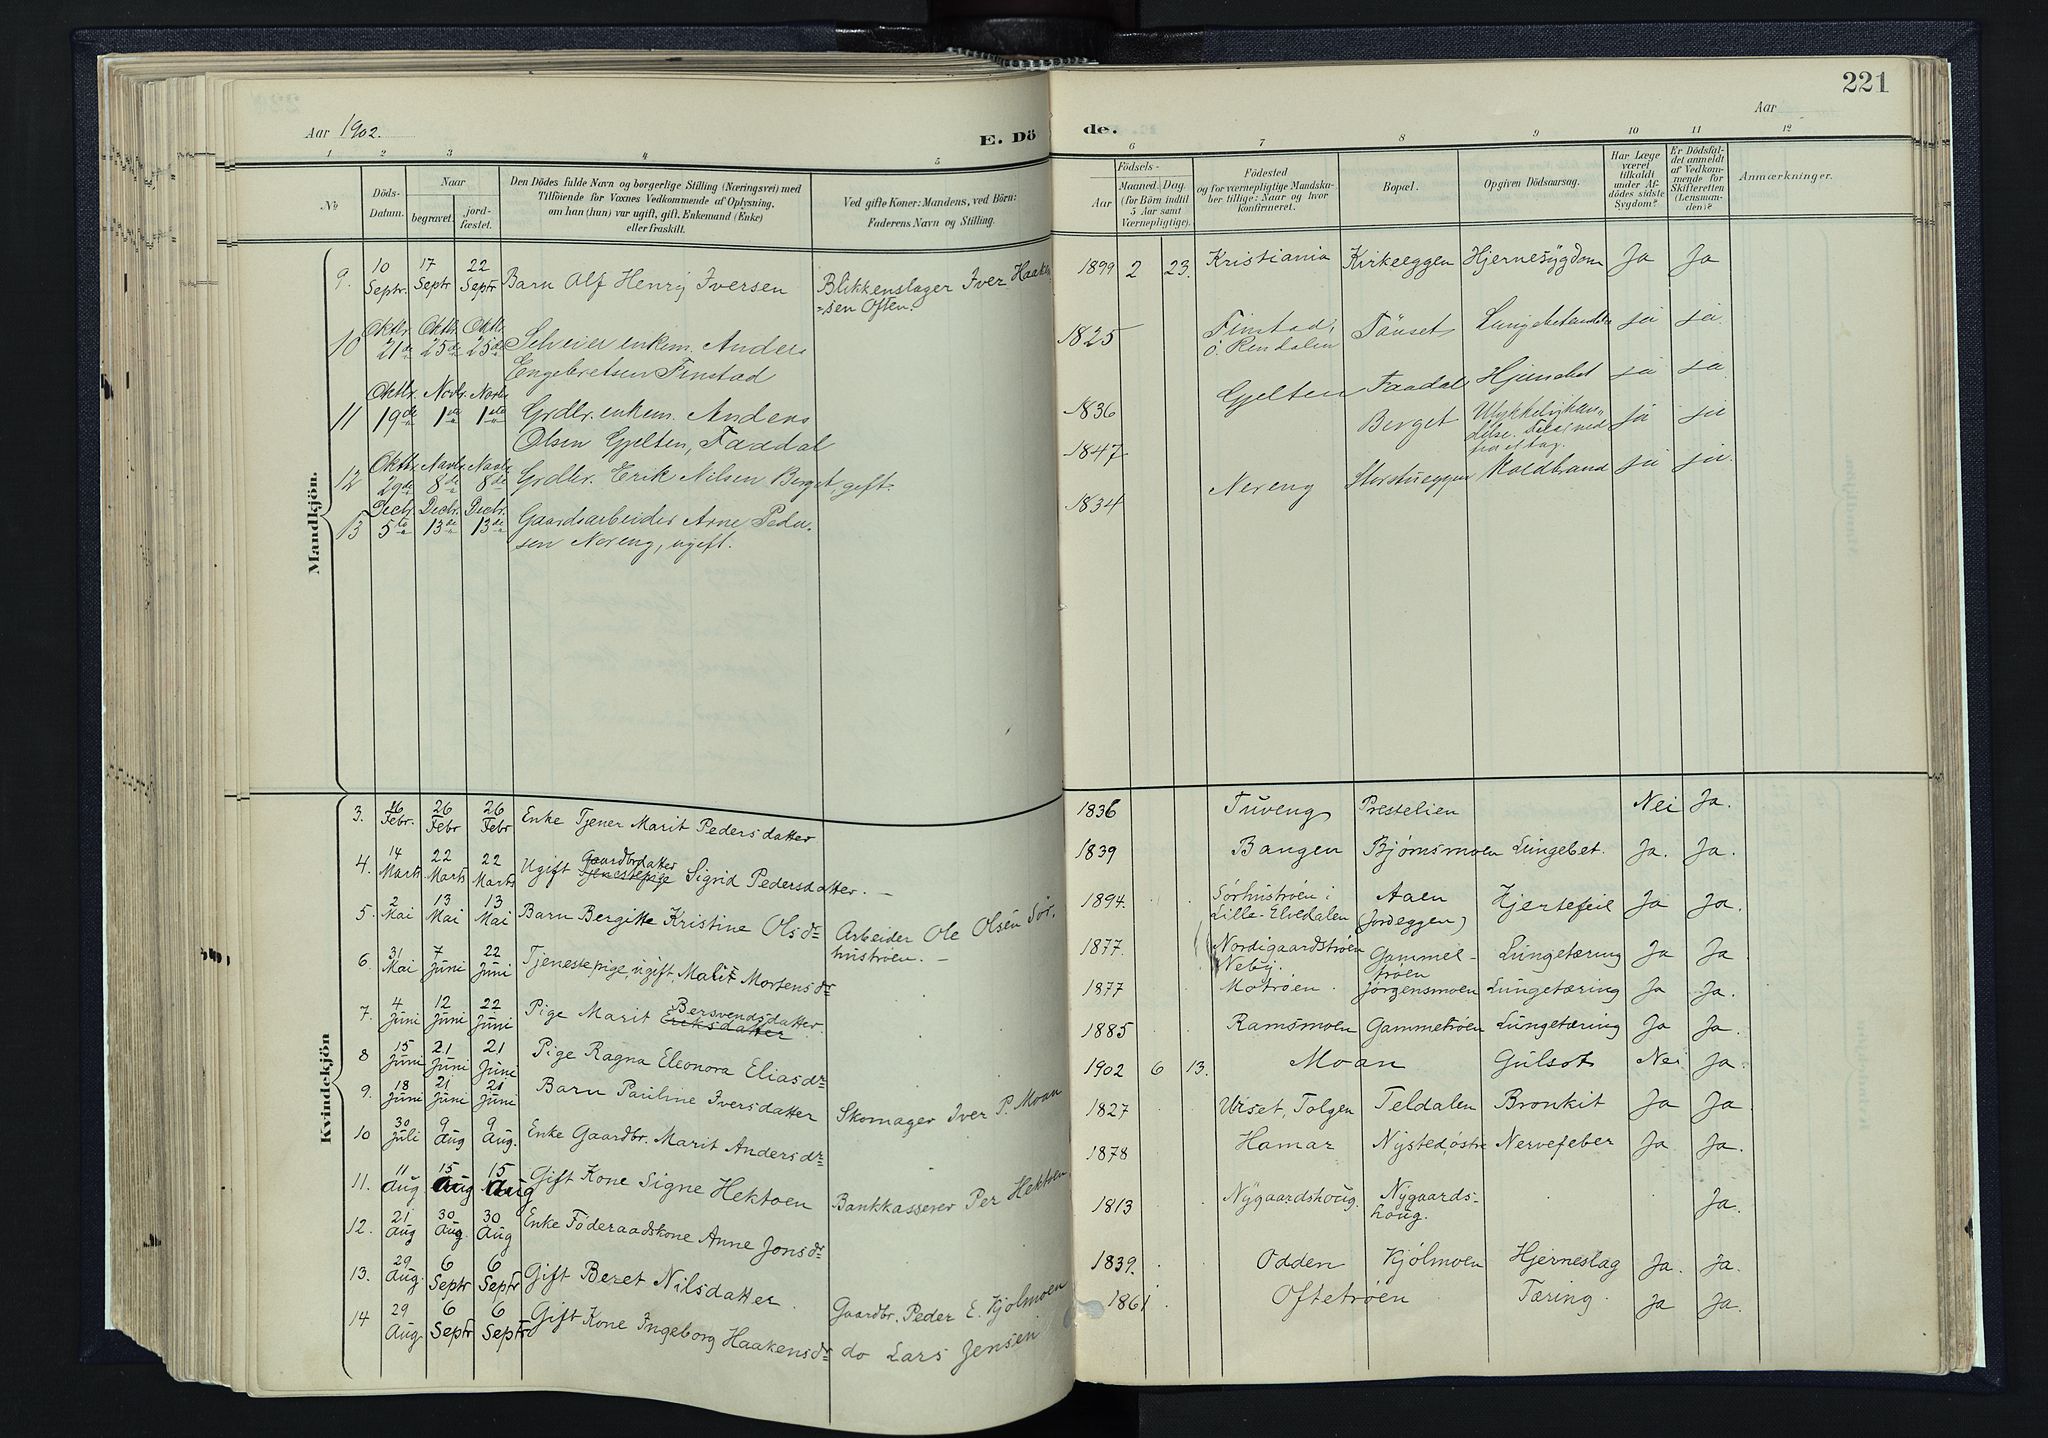 221
Aar 1902.
E. Döde.
Aar
1 2 3 4 5 6 7 8 9 10 11 12
No
Döds-Datum.
Naar
begravet. jordfæstet.
Den Dödes fulde Navn og borgerlige Stilling (Næringsvei) med
Tilföiende for Voxnes Vedkommende af Oplysning,
om han (hun) var ugift, gift, Enkemand (Enke)
eller fraskilt.
Ved gifte Koner: Mandens, ved Börn:
Faderens Navn og Stilling.
Födsels-
Aar
Maaned. Dag.
(for Börn indtil
5 Aar samt
Værnepligtige).
Födested
og for værnepligtige Mandskaber tillige: Naar og hvor
konfirmeret.
Bopæl.
Opgiven Dödsaarsag.
Har Læge
været
tilkaldt
under Afdödes sidste
Sygdom?
Er Dödsfaldet anmeldt
af Vedkommende for
Skifteretten
(Lensmanden)?
Anmærkninger.
Mandkjön.
9. 10 Septr. 17 Septr 22 Septr Barn Alf Henrij Iversen Blikkenslager Iver Haaken=sen Often. 1899 2 23. Kristiania Kirkeeggen Hjernesygdom Ja Ja
10 Oktbr. 21de Oktbr. 25de Oktbr. 25de Selveier enkem. Anders
Engebretsen Finstad 1825 Finstad, Ö. Rendalen Tönset ja ja
11 Oktbr. 19de Novbr. 1ste Novbr. 1ste Grdbr. enkem. Anders
Olsen Gjelten, Faadal 1836 Gjelten Faadal ja ja
12 Oktbr. 29de Novbr. 8de Novbr. 8de Grdbr. Erik Nilsen Berget, gift. 1847 Berget ja ja
13 Decbr. 5te Decbr. 13de Decbr. 13de Gaardsarbeider Arne Peder-
sen Nereng, ugift. 1834 Nereng Storstueggen Koldbrand ja ja.
Kvindekjön
3. 16 Febr. 26 Febr 26 Febr Enke Tjener Marit Pedersdatter 1836 Tuveng Prestelien Nei Ja.
4. 14 Marts 22 Marts 22 Marts Ugift Gaardbrdatter Tjenestepige Sigrid Pedersdatter. — 1839 Bangen Bjørnsmoen Lungebet. Ja. Ja.
5. 2 Mai 13 Mai 13 Mai Barn Bergitte Kristine Olsdr Arbeider Ole Olsen Sør-
hustroen. — 1894. Sørhustrøen i Lille-Elvedalen Aaen (Jordeggen) Hjertefeil Ja Ja.
6. 31 Mai 7 Juni 22 Juni Tjenestepige, ugift, Marit Mortensdr 1877. Nordigaardstrøen Neby. Gammel-trøen Lungetæring Ja Ja
7. 4 Juni 12 Juni 22 Juni Pige Marit Bersvendsdatter. Eriksdatter 1877 Motrøen. Jørgensmoen Lungetæring Ja Ja.
8 15 Juni 21 Juni 21 Juni Pige Ragna Eleonora Eliasdr 1885 Ramsmoen Gammeltrøen Lungetæring Ja Ja.
9. 18 Juni 21 Juni 21 Juni Barn Pauline Iversdatter Skomager Iver P. Moan 1902 6 13. Moan Gulsot Nei Ja.
10 30 Juli 9 Aug 9 Aug. Enke Gaardbr. Marit Andersdr 1827 Urset, Tolgen Teldalen Bronkit Ja Ja
11. 11 Aug 15 Aug 15 Aug Gift Kone Signe Hektoen Bankkasserer Per Hektoen 1878 Hamar Nysted, østre Nervefeber Ja Ja.
12. 21 Aug 30 Aug. 30 Aug Enke Föderaadskone Anne Jonsdr 1813 Nygaardshoug. Nygaards-houg. Ja.
13. 29 Aug. 6 Septr 6 Septr Gift Beret Nilsdatter. Gaardbr. Peder E. Kjølmoen 1839. Odden Kjølmoen Hjerneslag Ja. Ja.
14 29 Aug. 6 Septr 6 Septr Gift Kone Ingeborg Haakensdr do Lars Jensen 1861 Oftetrøen Tæring. Ja Ja.